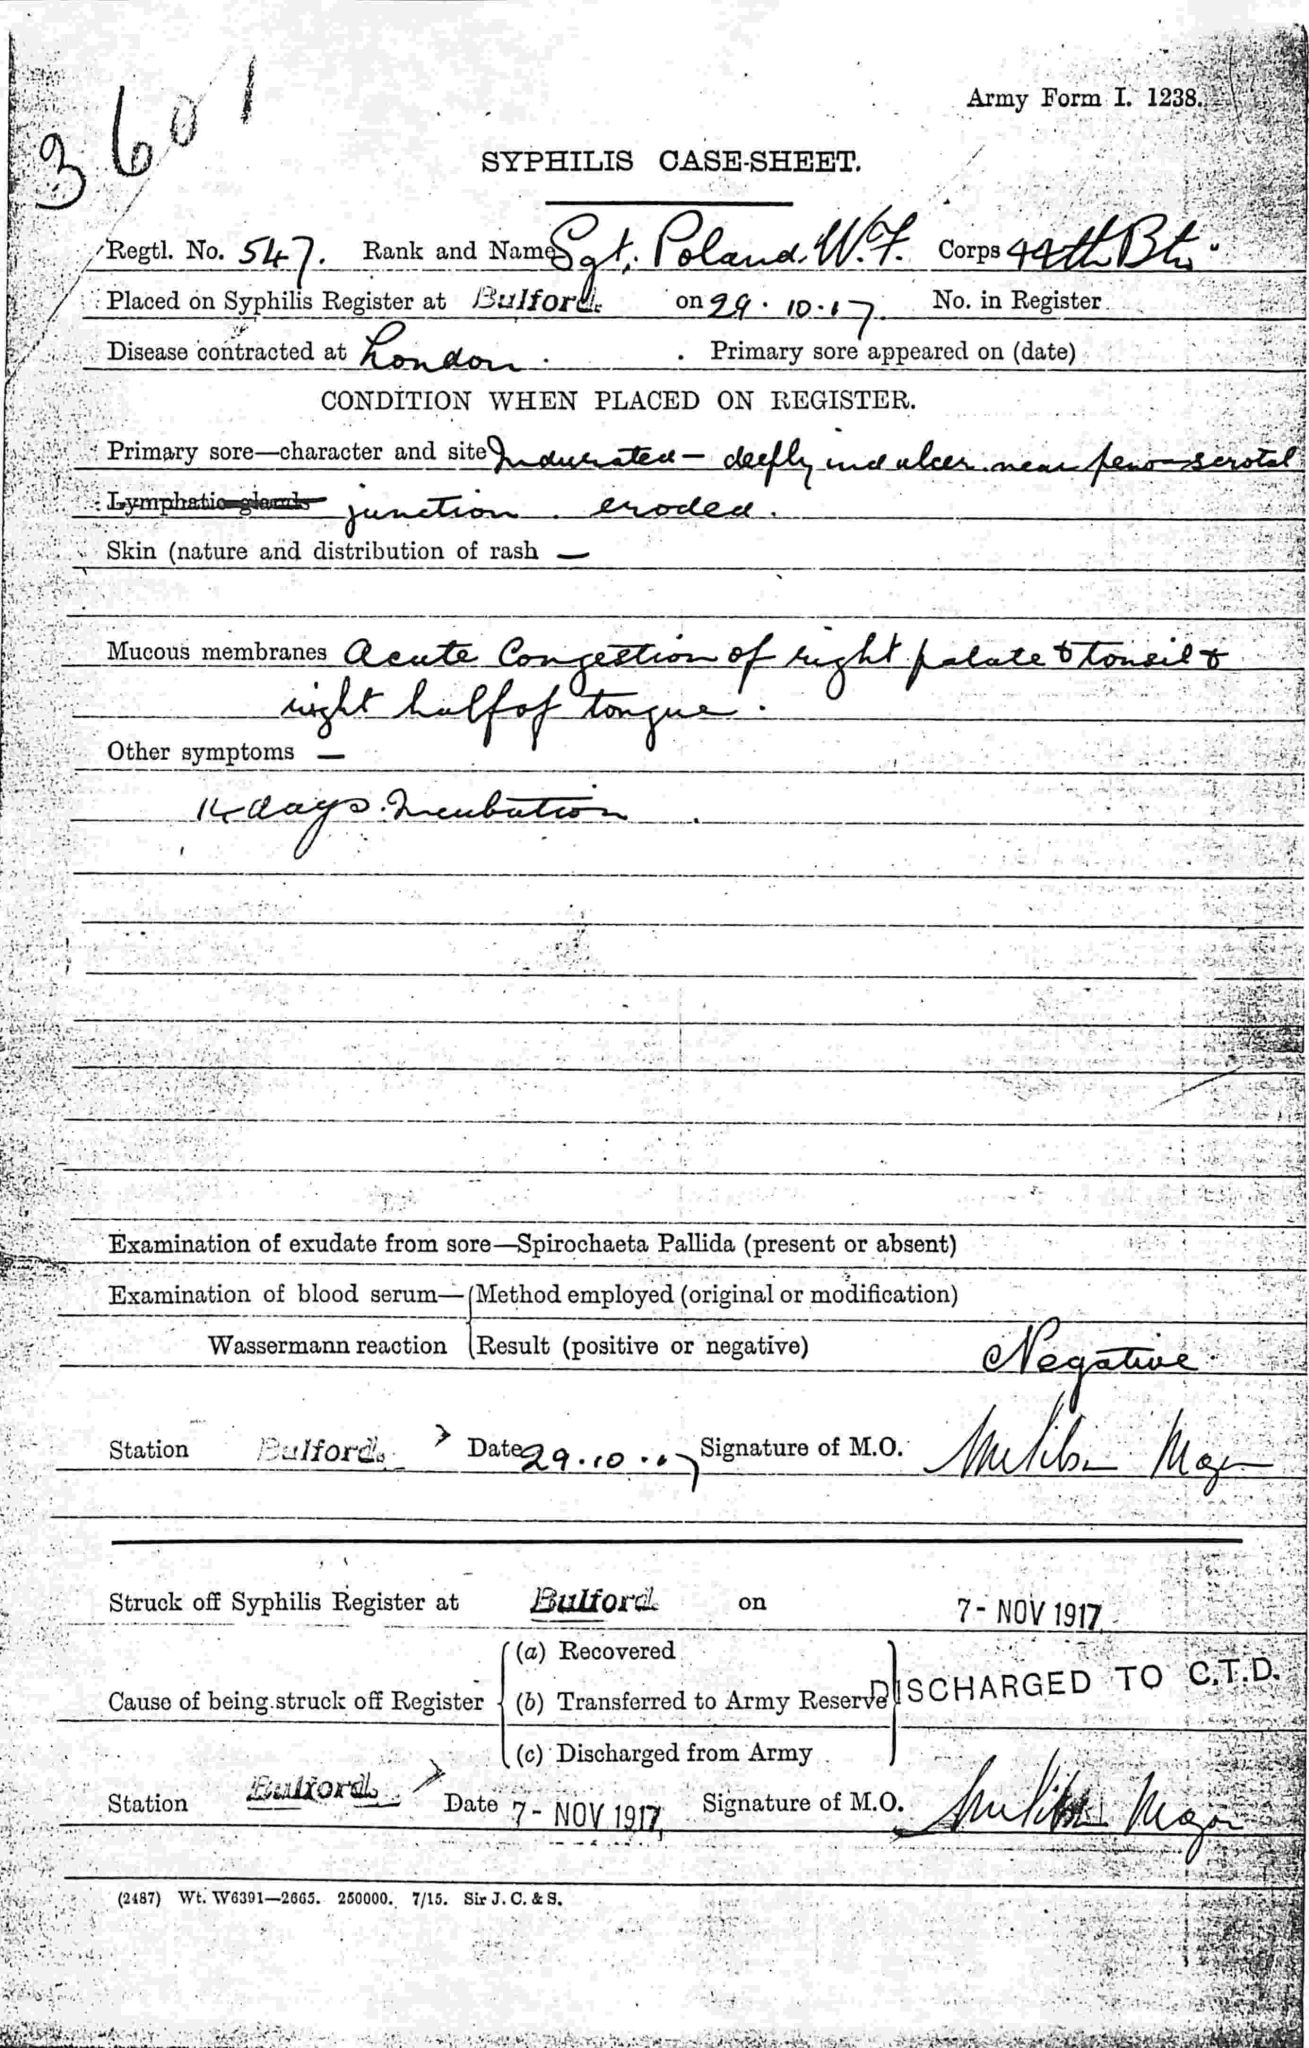 3601
Army Form I. 1238.
SYPHILIS CASE-SHEET.
Regtl. No. 547. Rank and Name Sgt. Poland. W.F. Corps 44th Btn.
Placed on Syphilis Register at Bulford. on 29.10.17. No. in Register
Disease contracted at London. Primary sore appeared on (date)
CONDITION WHEN PLACED ON REGISTER.
Primary sore—character and site Indurated – deeply ind ulcer near peno-scrotal
Lymphatic glands junction. eroded.
Skin (nature and distribution of rash —
Mucous membranes Acute Congestion of right palate & tonsil &
right half of tongue.
Other symptoms —
14 days. Incubation.
Examination of exudate from sore—Spirochaeta Pallida (present or absent)
Examination of blood serum— Method employed (original or modification)
Wassermann reaction Result (positive or negative) Negative.
Station Bulford. Date 29.10.17 Signature of M.O. Major
Struck off Syphilis Register at Bulford. on 7- NOV 1917
(a) Recovered
Cause of being struck off Register (b) Transferred to Army Reserve DISCHARGED TO C.T.D.
(c) Discharged from Army
Station Bulford. Date 7- NOV 1917 Signature of M.O. Major
(2487) Wt. W6391—2665. 250000. 7/15. Sir J. C. & S.